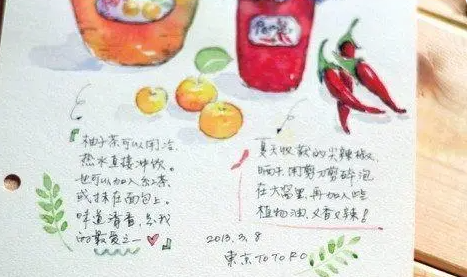 柚子茶可以用洁
热水直接冲饮。
也可以加入红茶
或抹在面包上。
味道清香,是我
的最爱之一
夏天收获的尖辣椒,
晒干用剪刀剪碎泡
在大醋里,再加入些
植物油,又香又辣!
2013.3.8
東京TOTORO